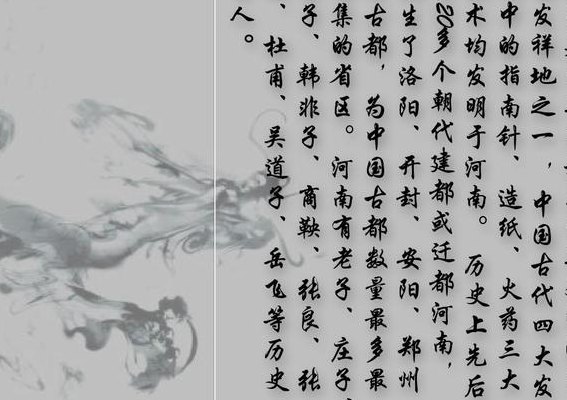 发祥地之一，中国古代四大发
中的指南针、造纸、火药三大
术均发明于河南。历史上先后
20多个朝代建都或迁都河南，
生了洛阳、开封、安阳、郑州
古都，为中国古都数量最多最
集的省区。河南有老子、庄子、
子、韩非子、商鞅、张良、张
、杜甫、吴道子、岳飞等历史
人。